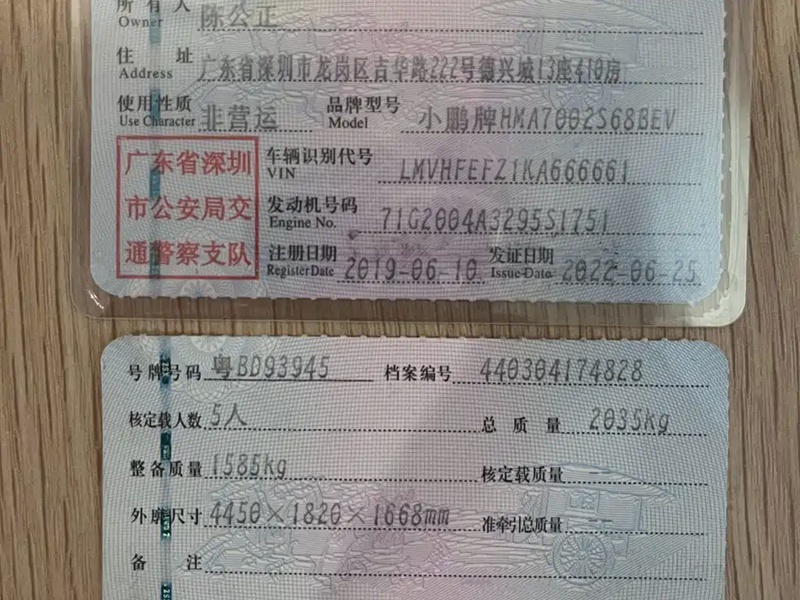 所有人 陈公正
Owner
住 址 广东省深圳市龙岗区吉华路222号德兴城13座410房
Address
使用性质 非营运 品牌型号 小鹏牌HMA7002S68BEV
Use Character Model
广东省深圳
市公安局交
通警察支队
车辆识别代号 LMVHFEFZ1KA666661
VIN
发动机号码 71G2004A3295S1751
Engine No.
注册日期 2019-06-10 发证日期 2022-06-25
Register Date Issue Date
号牌号码 粤BD93945 档案编号 440304174828
核定载人数 5人 总质量 2035kg
整备质量 1585kg 核定载质量 --
外廓尺寸 4450×1820×1668mm 准牵引总质量 --
备 注